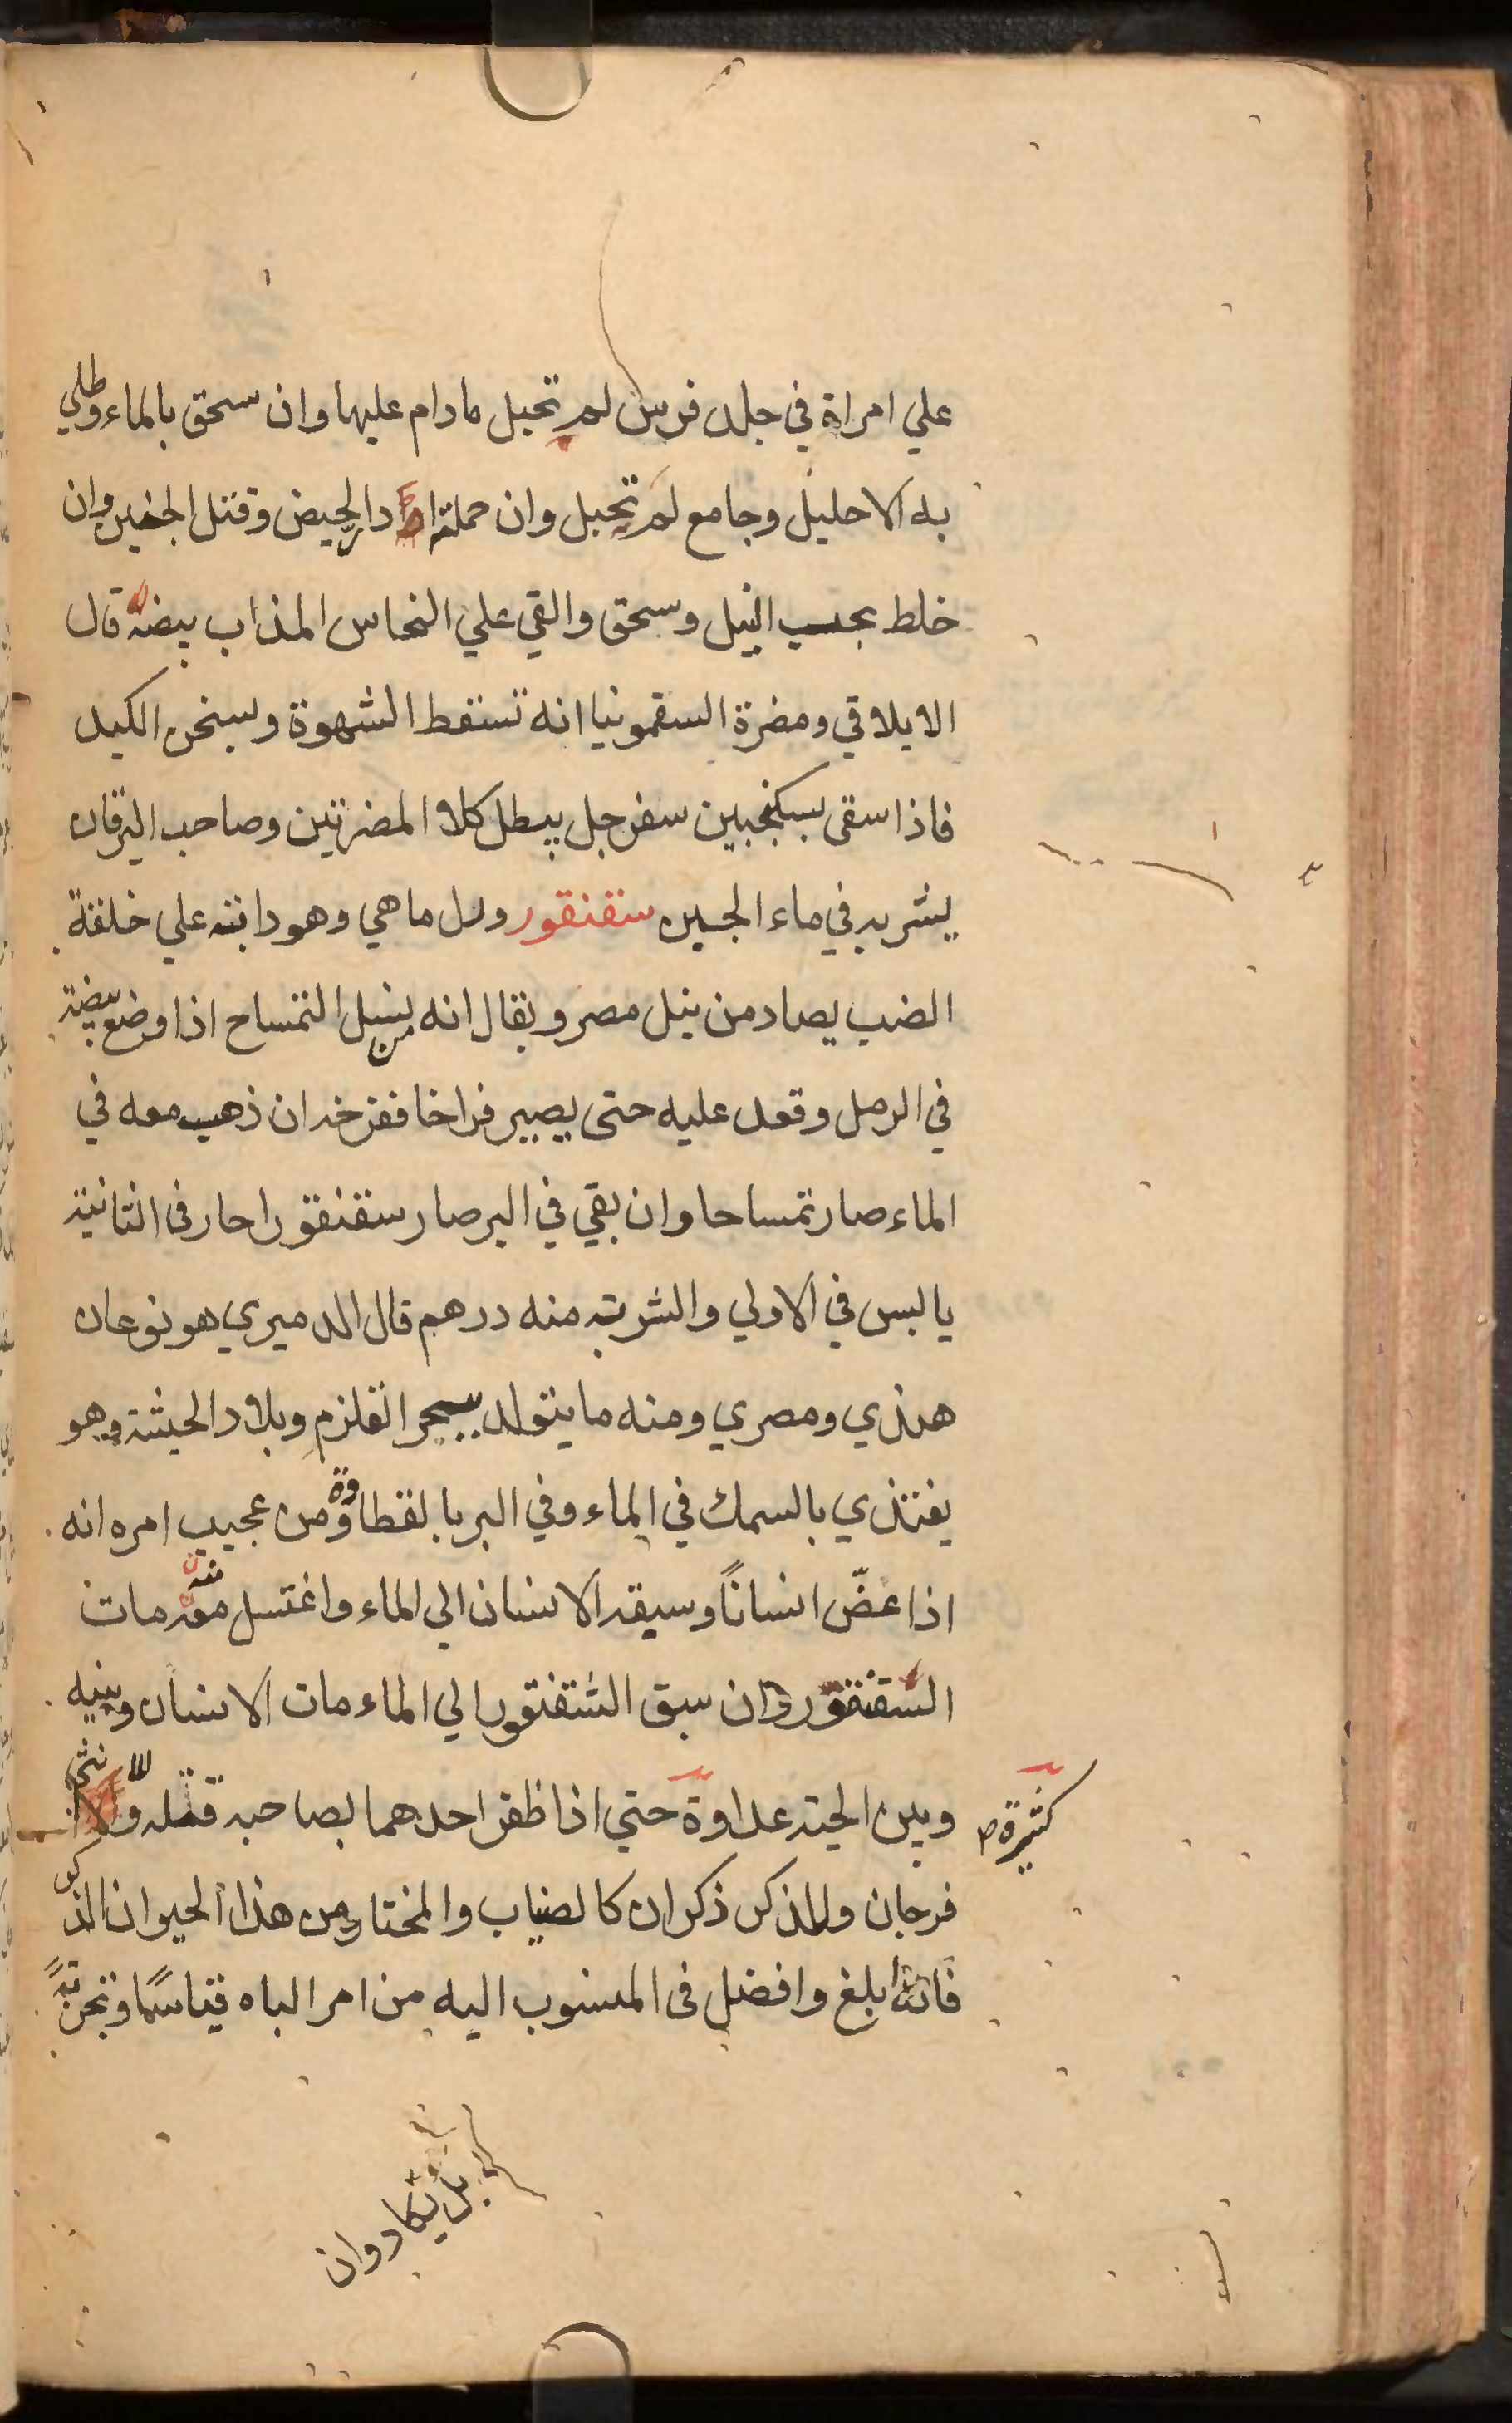 علي امراة في جلد فرس لم تحبل مادام عليها وان سحق بالماء وطلي
به الاحليل وجامع لم تحبل وان حملته ادر الحيض وقتل الجنين وان
خلط بحب النيل وسحق والقي علي النحاس المذاب بيضه قال
الايلاقي ومضرة السقمونيا انه تسقط الشهوة ويسخن الكبد
فاذا سقى بسكنجبين سفرجل يبطل كلا المضرتين وصاحب اليرقان
يشربه في ماء الجبن سقنقور ورل ماهي وهو دابته علي خلقة
الضب يصاد من نيل مصر ويقال انه من نسل التمساح اذا وضع بيضته
في الرمل وقعد عليه حتى يصير فراخا ففرخه ان ذهب معه في
الماء صار تمساحا وان بقي في البر صار سقنقورا حار في الثانية
يابس في الاولي والشربة منه درهم قال الدميري هو نوعان
هندي ومصري ومنه ما يتولد ببحر القلزم وبلاد الحبشة وهو
يغتذي بالسمك في الماء وفي البر بالقطا ومن عجيب امره انه
اذا عضّ انسانًا وسبقه الانسان الي الماء واغتسل منه مات
السقنقور وان سبق السقنقور الي الماء مات الانسان وبينه
وبين الحية عداوة كثيرة حتي اذا ظفر احدهما بصاحبه قتله وللانثى
فرجان وللذكر ذكران كالضباب والمختار من هذا الحيوان الذكر
فانه ابلغ وافضل في المنسوب اليه من امر الباه قياسًا وتجربةً
بل يكاد وان